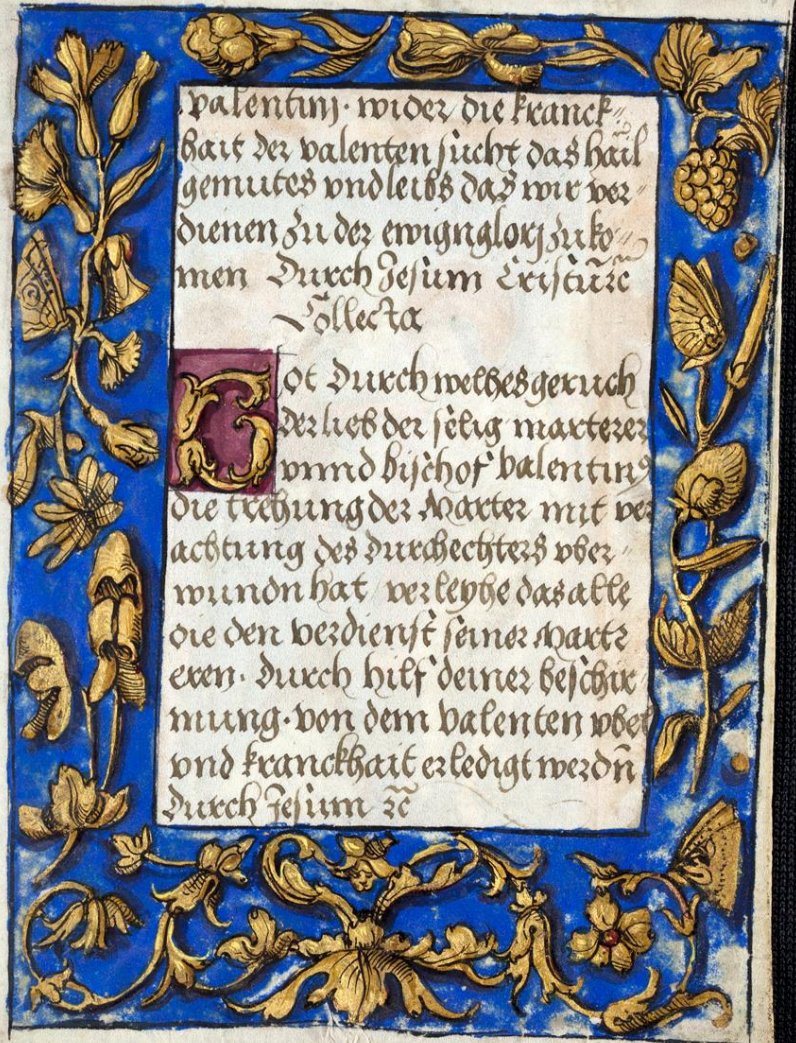 .valentinj. wider die kranck-
hait der valenten sücht das hail
gemütes vnd leibs das wir ver-
dienen zu der ewign glorj zu ko-
men Durch Jesum Cristü ꝛc̄
Collecta
Got durch welhes geruch
der lieb der sëlig marterer
vnnd bischof valentinꝰ
die trehung der Marter mit ver
achtung des durchechters vber-
wundn hat verleyhe das alle
die den verdienst seiner Martr
eren. durch hilf deiner beschir
mung. von dem valenten vbel
vnd kranckhait erledigt werdn̄
Durch Jesum ꝛc̄